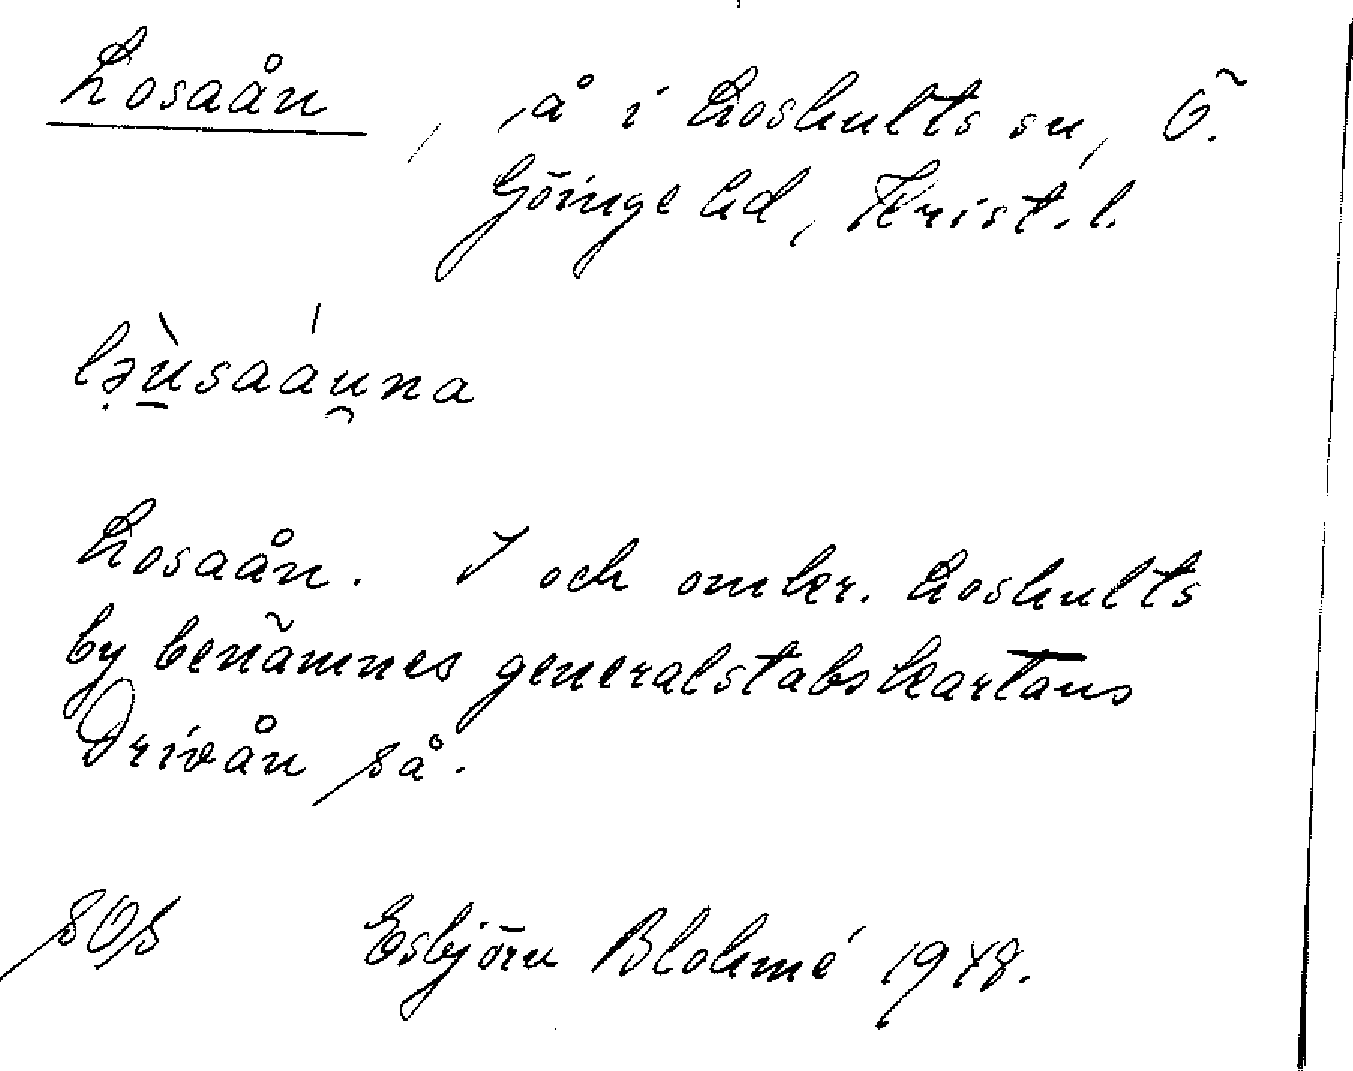 Losaån, å i Loshults sn, Ö.
Göinge hd, Krist. l.
lə̣ùsaáu̯na
Losaån. I och omkr. Loshults
by benämnes generalstabskartans
Drivån så.
SOS Esbjörn Blohmé 1948.